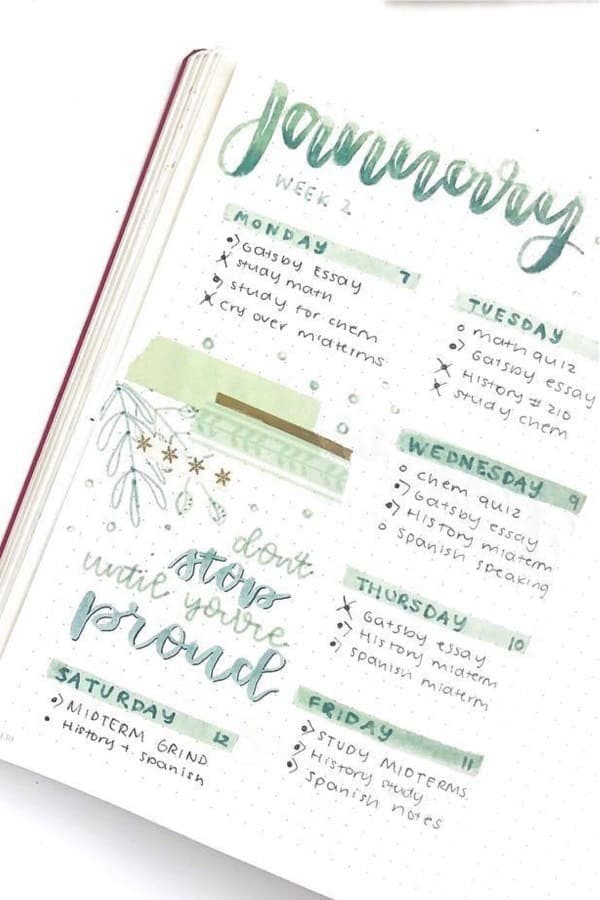 January
WEEK 2
MONDAY 7
Gatsby Essay
study math
study for chem
cry over midterms
TUESDAY
math quiz
Gatsby essay
History # 210
study chem
WEDNESDAY 9
chem quiz
Gatsby essay
History midterm
spanish speaking
don't
stop
until you're
proud
THURSDAY 10
Gatsby essay
History midterm
spanish midterm
SATURDAY 12
MIDTERM GRIND
History + spanish
FRIDAY 11
STUDY MIDTERMS
History study
spanish notes